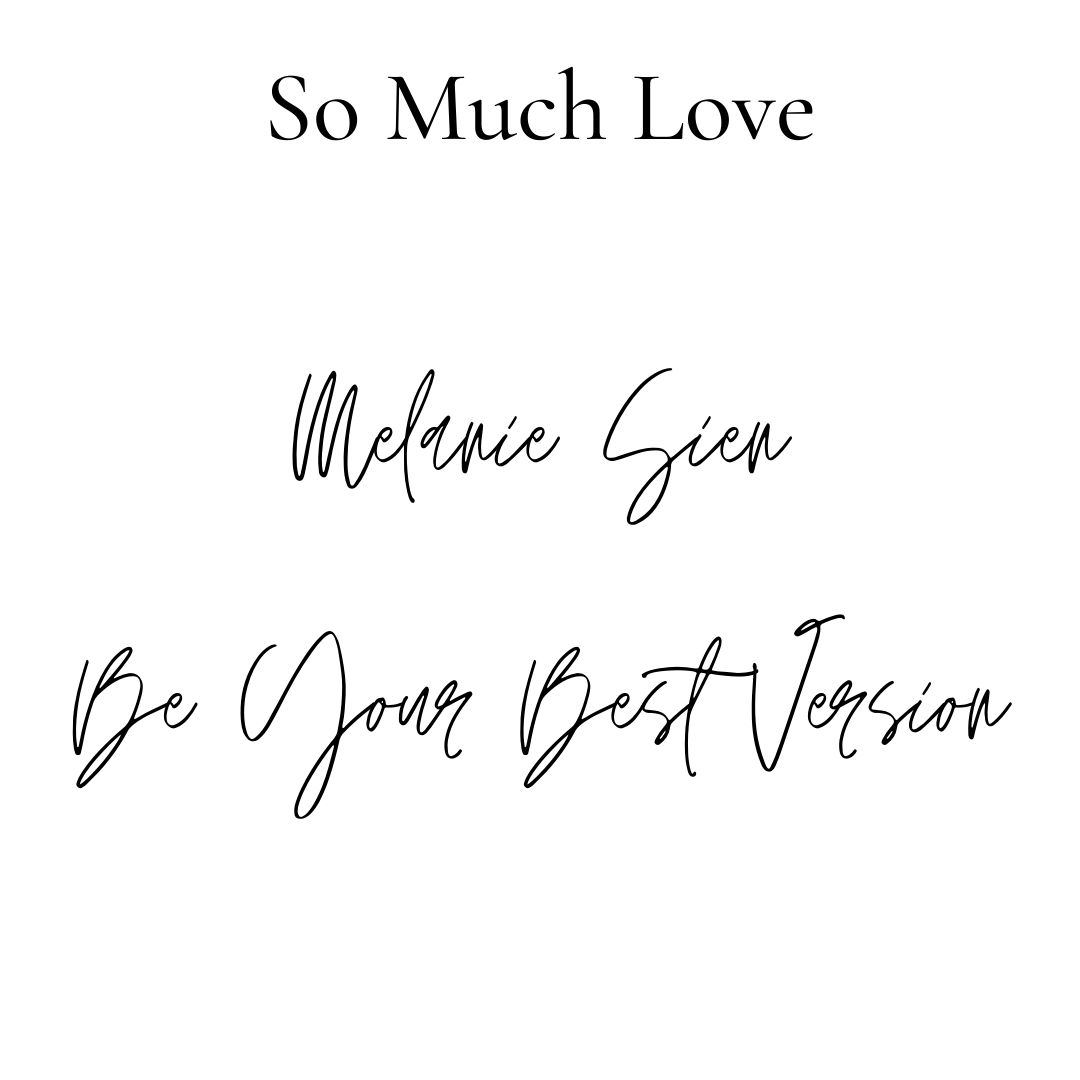 So Much Love
Melanie Sien
Be Your Best Version